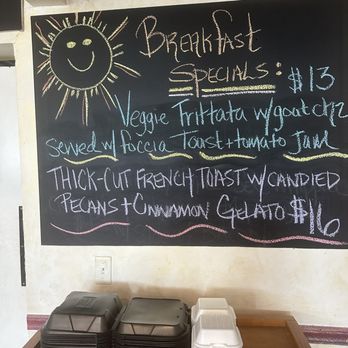 Breakfast
Specials: $13
Veggie Frittata w/goat chz
Served w/ foccia Toast + tomato Jam
THICK-CUT FRENCH TOAST W/CANDIED
PECANS + CINNAMON GELATO $16